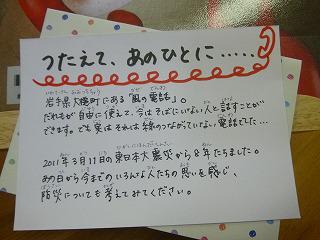 つたえて、あのひとに.....
岩手県大槌町にある「風の電話」。
だれもが自由に使えて、今はそばにいない人と話すことが
できます。でも実はそれは線のつながっていない電話でした…
2011年3月11日の東日本大震災から8年たちました。
あの日から今までのいろんな人たちの思いを感じ、
防災についても考えてみてください。